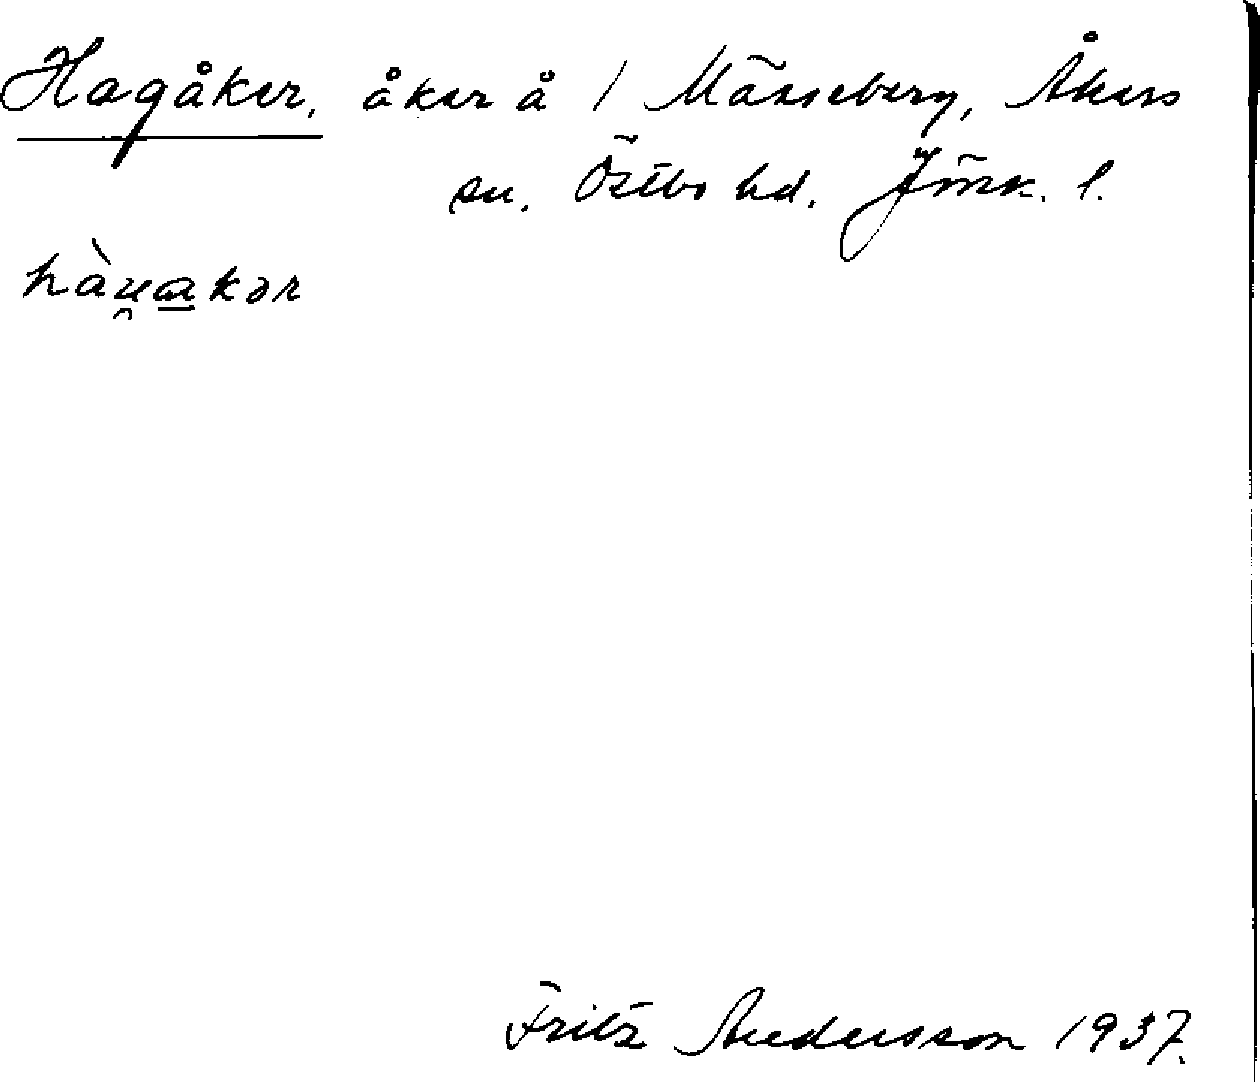 Hagåker, åker å / Mässeberg, Åkers
sn. Östbo hd. Jönk. l.
hàu̯a̲kər
Fritz Andersson 1937.